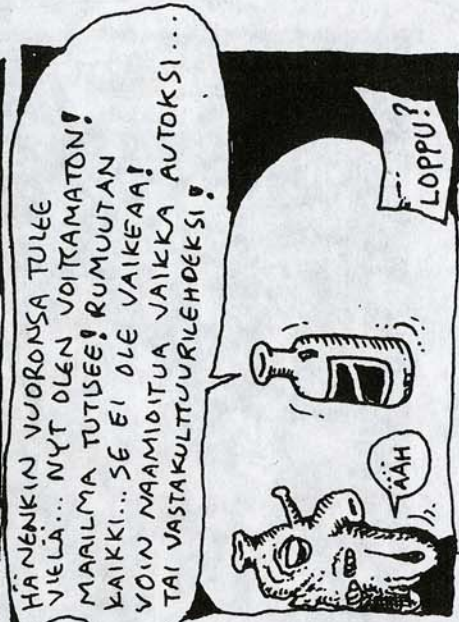 HÄNENKIN VUORONSA TULEE
VIELÄ... NYT OLEN VOITTAMATON!
MAAILMA TUTISEE! RUMUUTAN
KAIKKI... SE EI OLE VAIKEAA!
VOIN NAAMIOITUA VAIKKA AUTOKSI...
TAI VASTAKULTTUURILEHDEKSI!
ÄÄH
LOPPU?